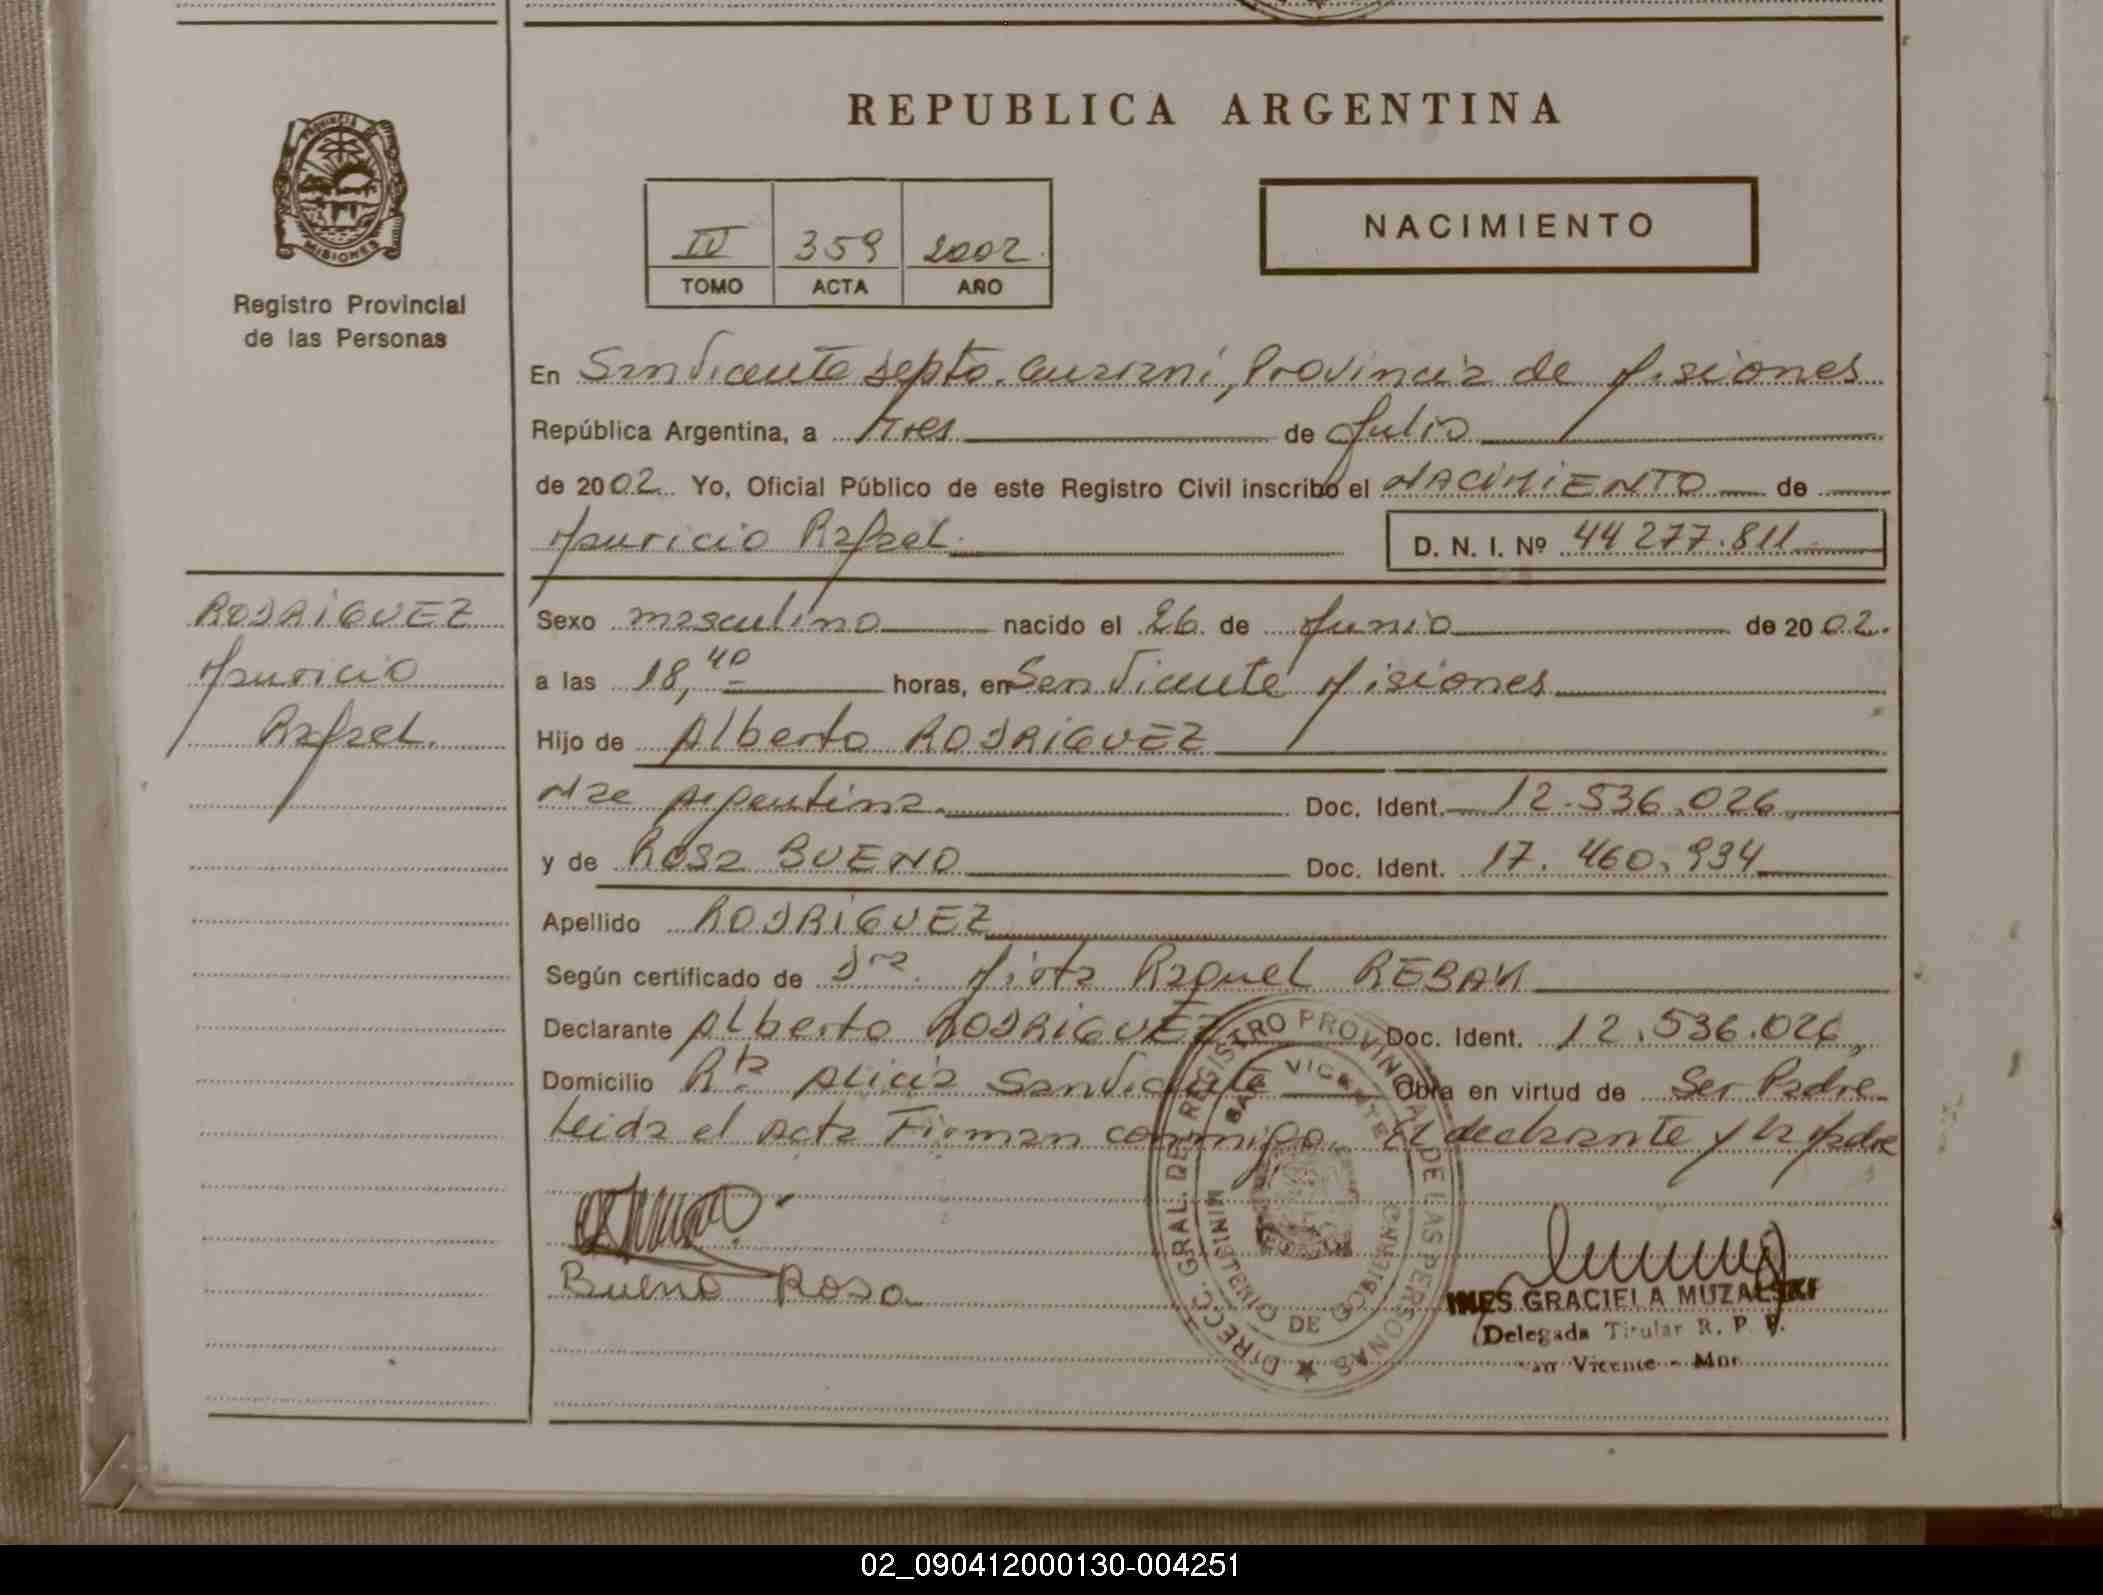 REPUBLICA ARGENTINA
PROVINCIA DE MISIONES
Registro Provincial
de las Personas
IV 359 2002
TOMO ACTA AÑO
NACIMIENTO
En San Vicente Depto. Guaraní, Provincia de Misiones
República Argentina, a Tres de Julio
de 2002. Yo, Oficial Público de este Registro Civil inscribo el NACIMIENTO de
Mauricio Rafael. D. N. I. Nº 44 277.811
RODRIGUEZ
Mauricio
Rafael.
Sexo masculino nacido el 26 de Junio de 2002.
a las 18,40 horas, en San Vicente Misiones
Hijo de Alberto RODRIGUEZ
Nac Argentina. Doc. Ident. 12.536.026
y de Rosa BUENO Doc. Ident. 17.460.934
Apellido RODRIGUEZ
Según certificado de Dra. Mirta Raquel
Declarante Alberto RODRIGUEZ Doc. Ident. 12.536.026,
Domicilio Rta Alicia San Vicente Obra en virtud de Ser Padre
Leida el Acta Firman conmigo El declarante y la Madre
DIRECC. GRAL. DE REGISTRO PROVINCIAL DE LAS PERSONAS
SAN VICENTE
MINISTERIO DE GOBIERNO
Bueno Rosa
INES GRACIELA MUZALSKI
Delegada Titular R. P. P.
San Vicente - Mnes.
02_090412000130-004251